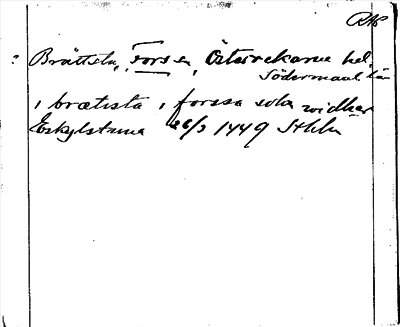 RAP
: Brättsta, Forss sn, Österrekarne hd.
Södermanl. län
i brætista i forssa sokn widh
Eskylstuna 26/3 1449 Sthlm